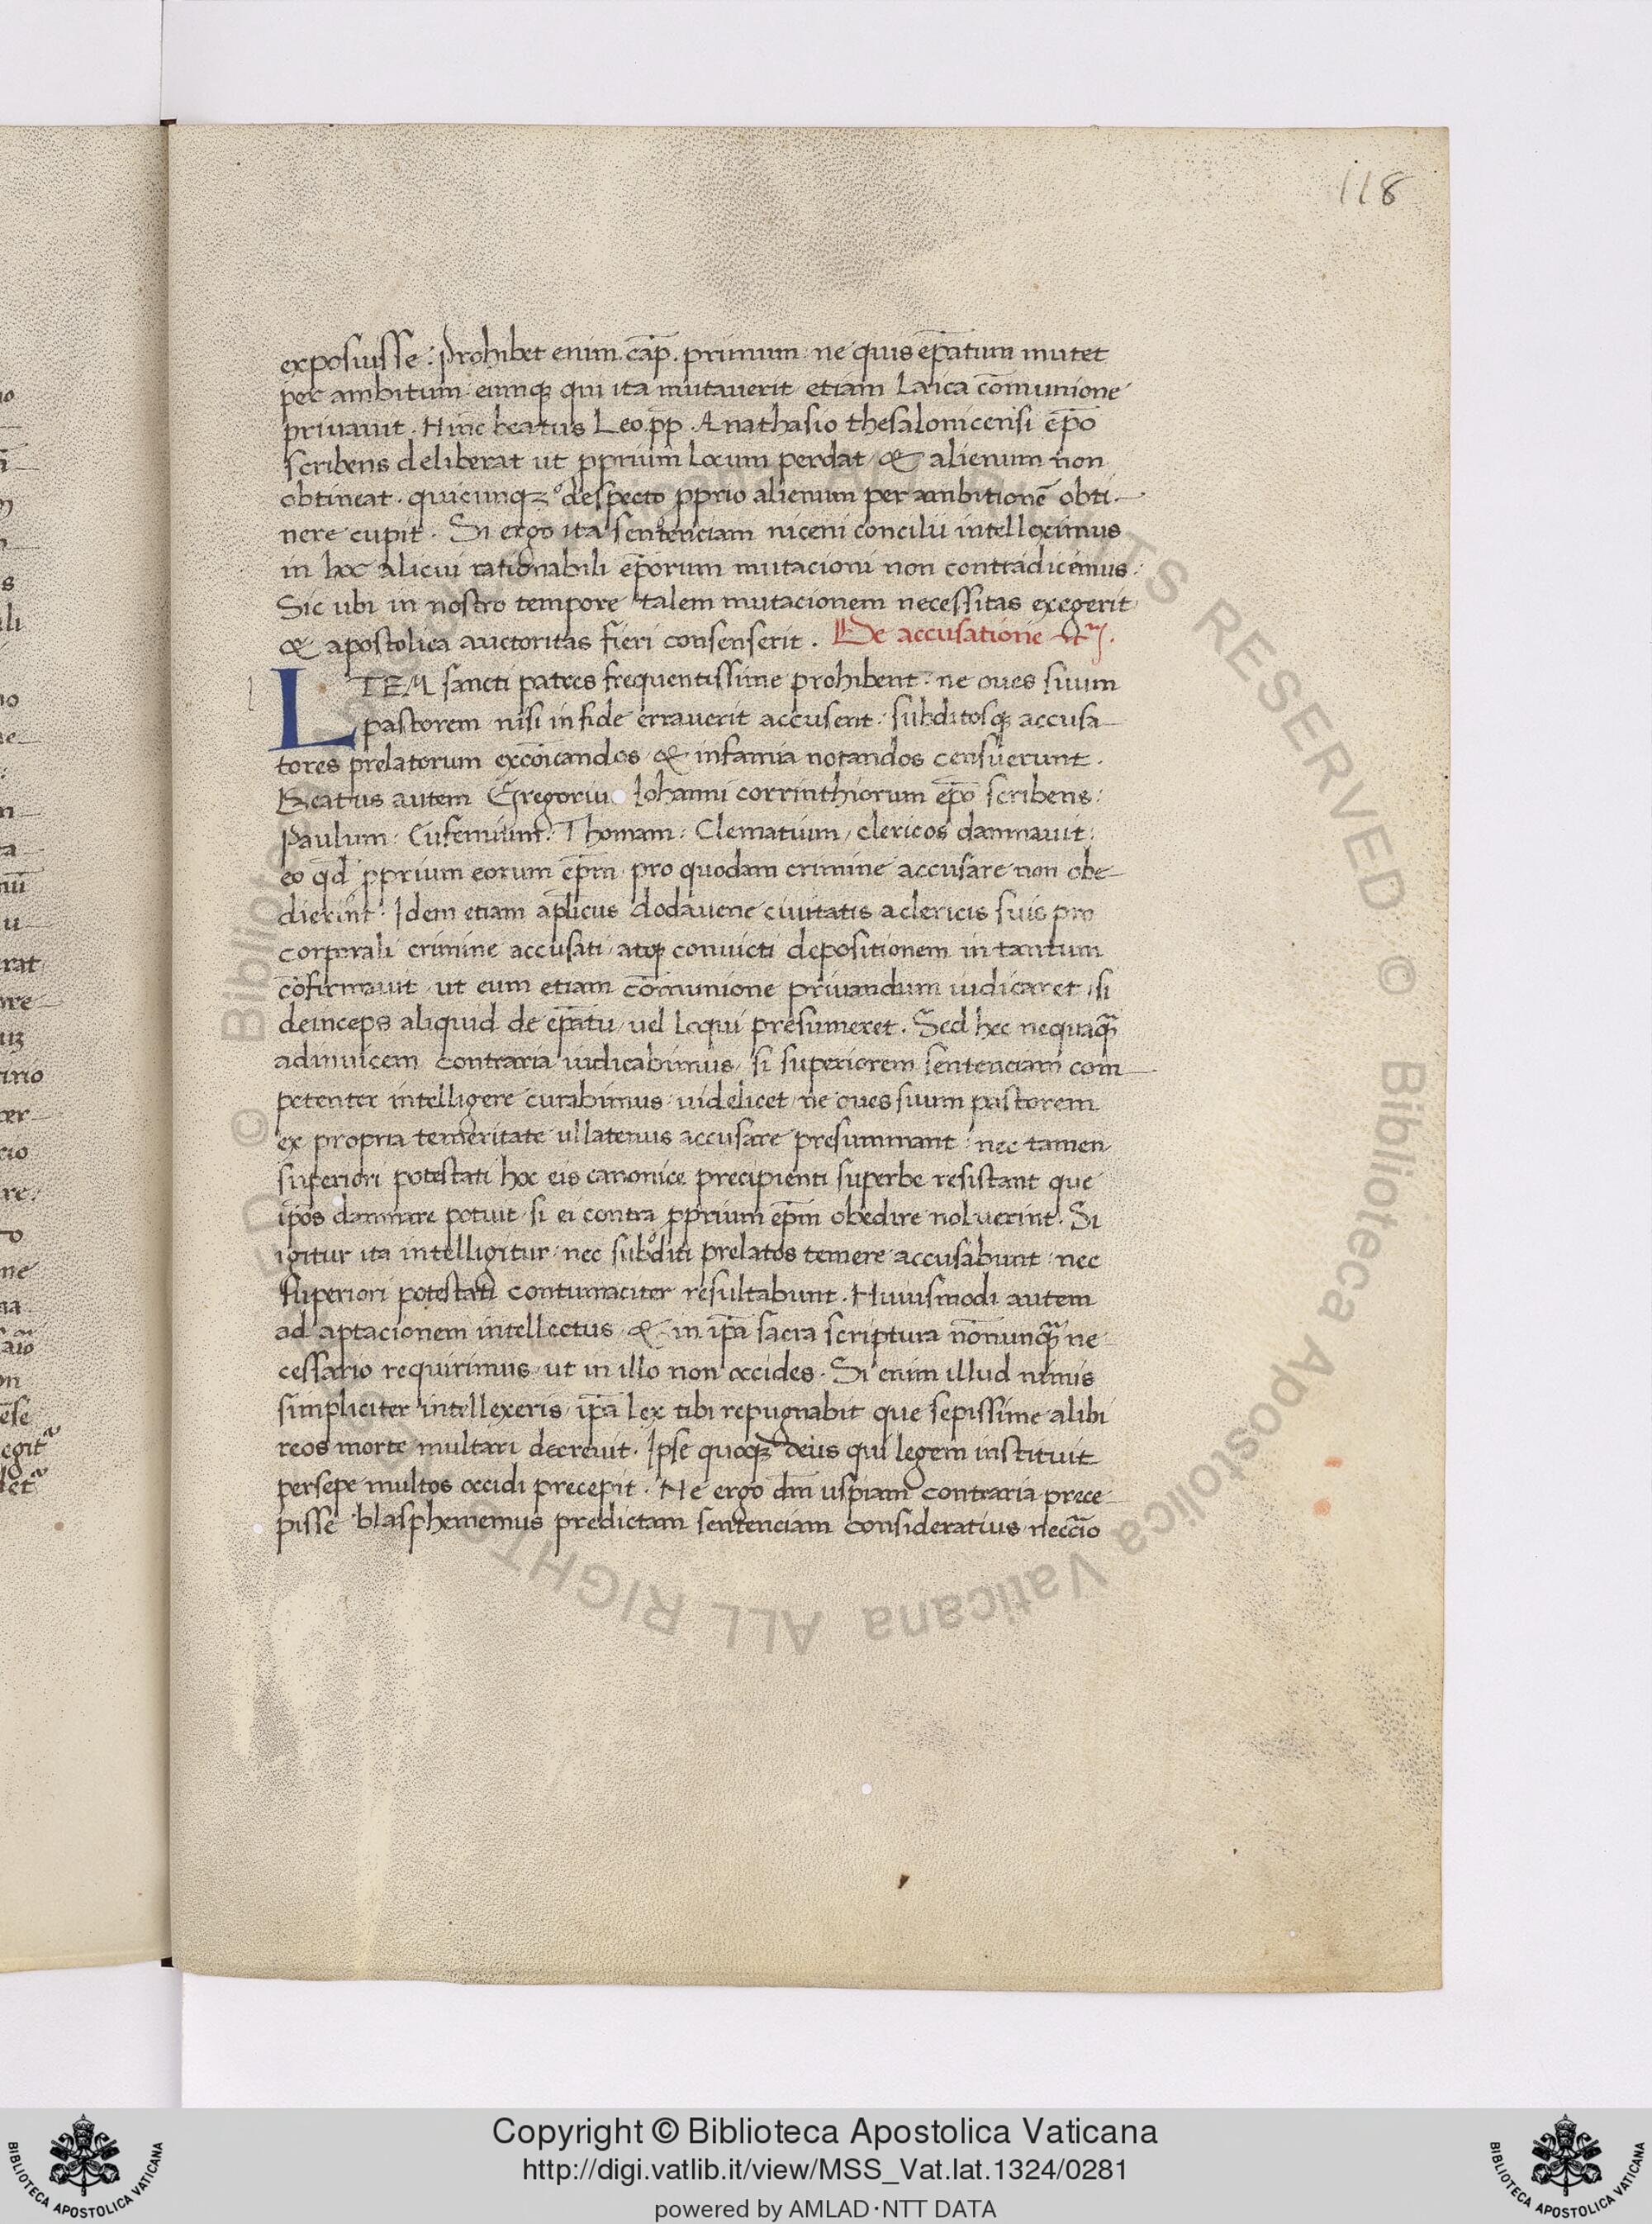 118
exposuisse : prohibet enim . cāp . primum ne quis ep̄atum mutet
per ambitum eumq; qui ita mutauerit etiam Laica cōmunione
priuauit . Hinc beatus Leo . pp . Anathasio thesalonicensi ep̄o
scribens deliberat ut pprium Locum perdat & alienum non
obtineat . quicunq; despecto pprio alienum per ambitionē obti-
nere cupit . Si ergo ita sentenciam niceni concilii intellexcimus
in hoc alicui rationabili ep̄orum mutacioni non contradicemus :
Sic ubi in nostro tempore talem mutacionem necessitas exegerit
& apostolica auctoritas fieri consenserit . De accusatione
LTEM sancti patres frequentissime prohibent : ne oues suum
pastorem nisi in fide errauerit accusent : subditosq; accusa-
tores prelatorum excōicandos & infamia notandos censuerunt .
Beatus autem Gregoriu Iohanni corrinthiorum ep̄o scribens :
Paulum : Eufemium : Thomam : Clematium / clericos damnauit :
eo qd pprium eorum ep̄m pro quodam crimine accusare non obe-
dierint : Idem etiam apl̄icus dodauene ciuitatis a clericis suis pro
corporali crimine accusati atq; conuicti depositionem in tantum
cōfirmauit ut eum etiam cōmunione priuandum iudicaret si
deinceps aliquid de ep̄atu uel loqui presumeret . Sed hec nequaq̄
adinuicem contraria iudicabimus si superiorem sentenciam com-
petenter intelligere curabimus uidelicet ne oues suum pastorem
ex propria temeritate ullatenus accusare presummant : nec tamen
superiori potestati hoc eis canonice precipienti superbe resistant que
ip̄os damnare potuit si ei contra pprium ep̄m obedire noluerint . Si
igitur ita intelligitur nec subditi prelatos temere accusabunt nec
superiori potestati contumaciter resultabunt . Huiusmodi autem
ad aptacionem intellectus & in ip̄a sacra scriptura nōnunq̄ ne-
cessario requirimus ut in illo non occides . Si enim illud nimis
simpliciter intellexeris ip̄a lex tibi repugnabit que sepissime alibi
reos morte multari decreuit . Ipse quoq; deus qui legem instituit
persepe multos occidi precepit . Ne ergo dm̄ uspiam contraria prece-
pisse blasphememus predictam sentenciam consideratius neccīo
© Biblioteca Apostolica Vaticana ALL RIGHTS RESERVED
Copyright © Biblioteca Apostolica Vaticana
http://digi.vatlib.it/view/MSS_Vat.lat.1324/0281
powered by AMLAD·NTT DATA
BIBLIOTECA APOSTOLICA VATICANA
BIBLIOTECA APOSTOLICA VATICANA